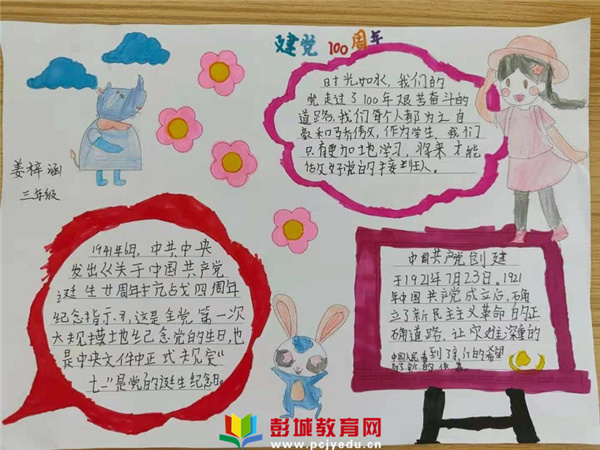 建党100周年
时光如水,我们的
党走过了100年艰苦奋斗的
道路,我们每个人都为之自
豪和骄傲,作为学生,我们
只有更加地学习,将来才能
做好党的接班人。
姜梓涵
三年级
1941年6月,中共中央
发出《关于中国共产党
诞生廿周年抗战四周年
纪念指示》,这是全党第一次
大规模地纪念党的生日,也
是中央文件中正式规定"
七一"是党的诞生纪念日。
中国共产党创建
于1921年7月23日。1921
年中国共产党成立后,确
立了新民主主义革命的正
确道路,让灾难深重的
中国人民看到了新的希望
彭城教育网
www.pcjyedu.cn